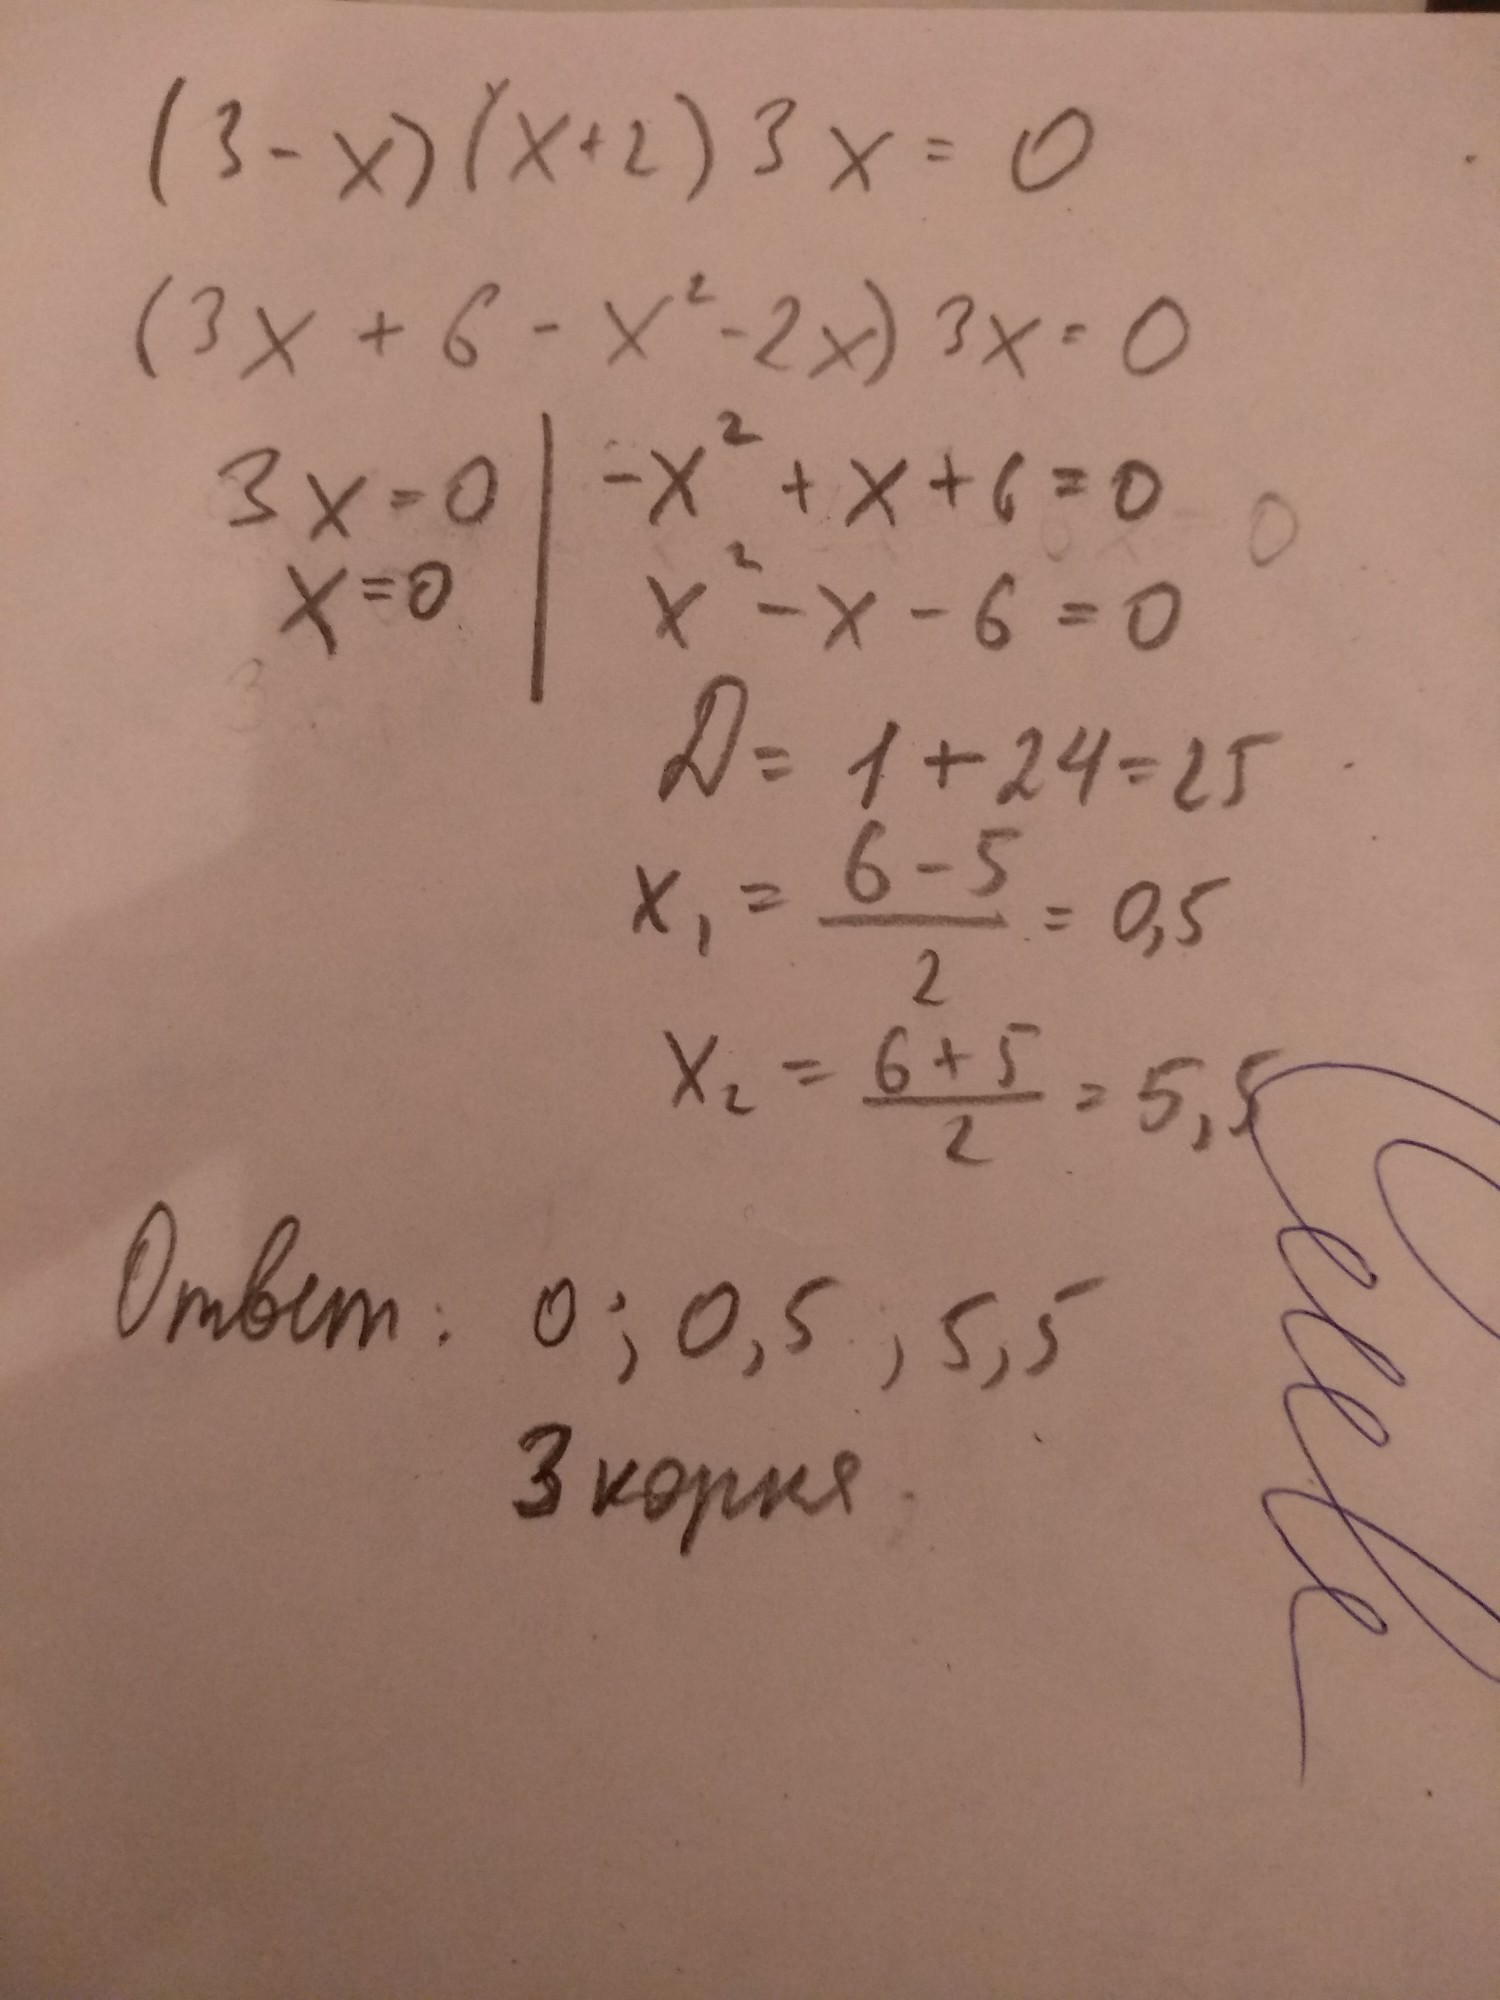 (3-x)(x+2)3x=0
(3x+6-x²-2x)3x=0
3x=0 | -x²+x+6=0
x=0 | x²-x-6=0
D=1+24=25
x₁=(6-5)/2=0,5
x₂=(6+5)/2=5,5
Ответ: 0; 0,5; 5,5
3 корня.